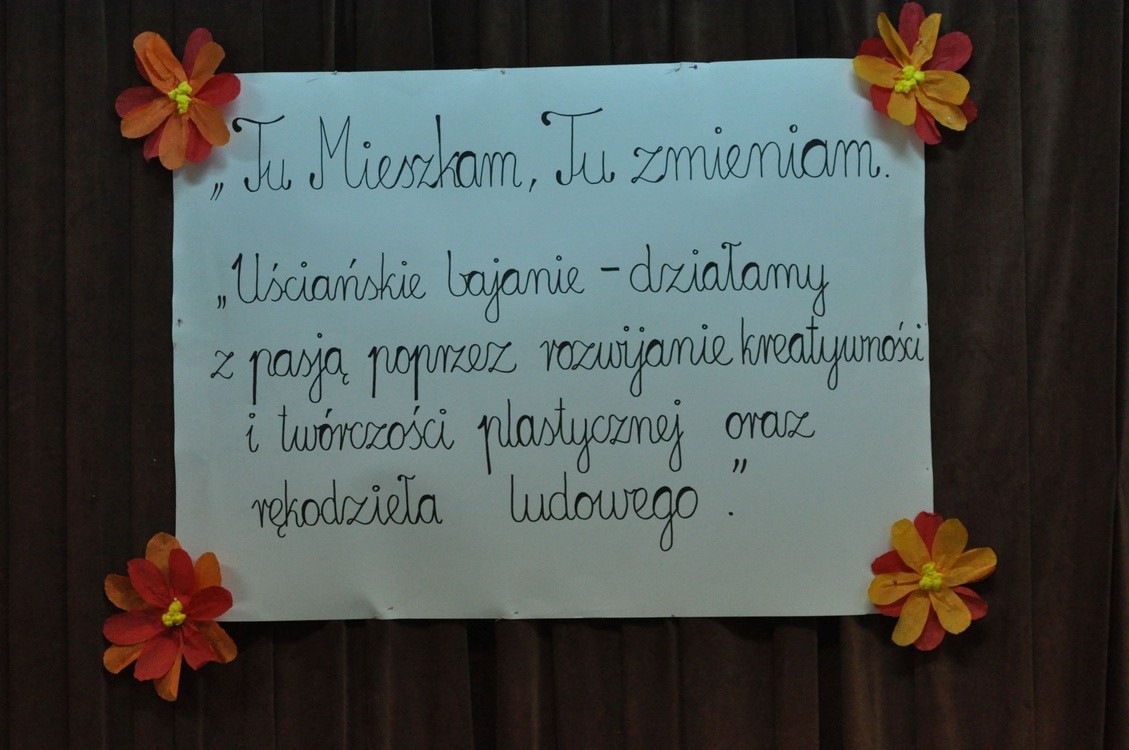 „Tu Mieszkam, Tu zmieniam.
„Uściańskie bajanie - działamy
z pasją poprzez rozwijanie kreatywności
i twórczości plastycznej oraz
rękodzieła ludowego."